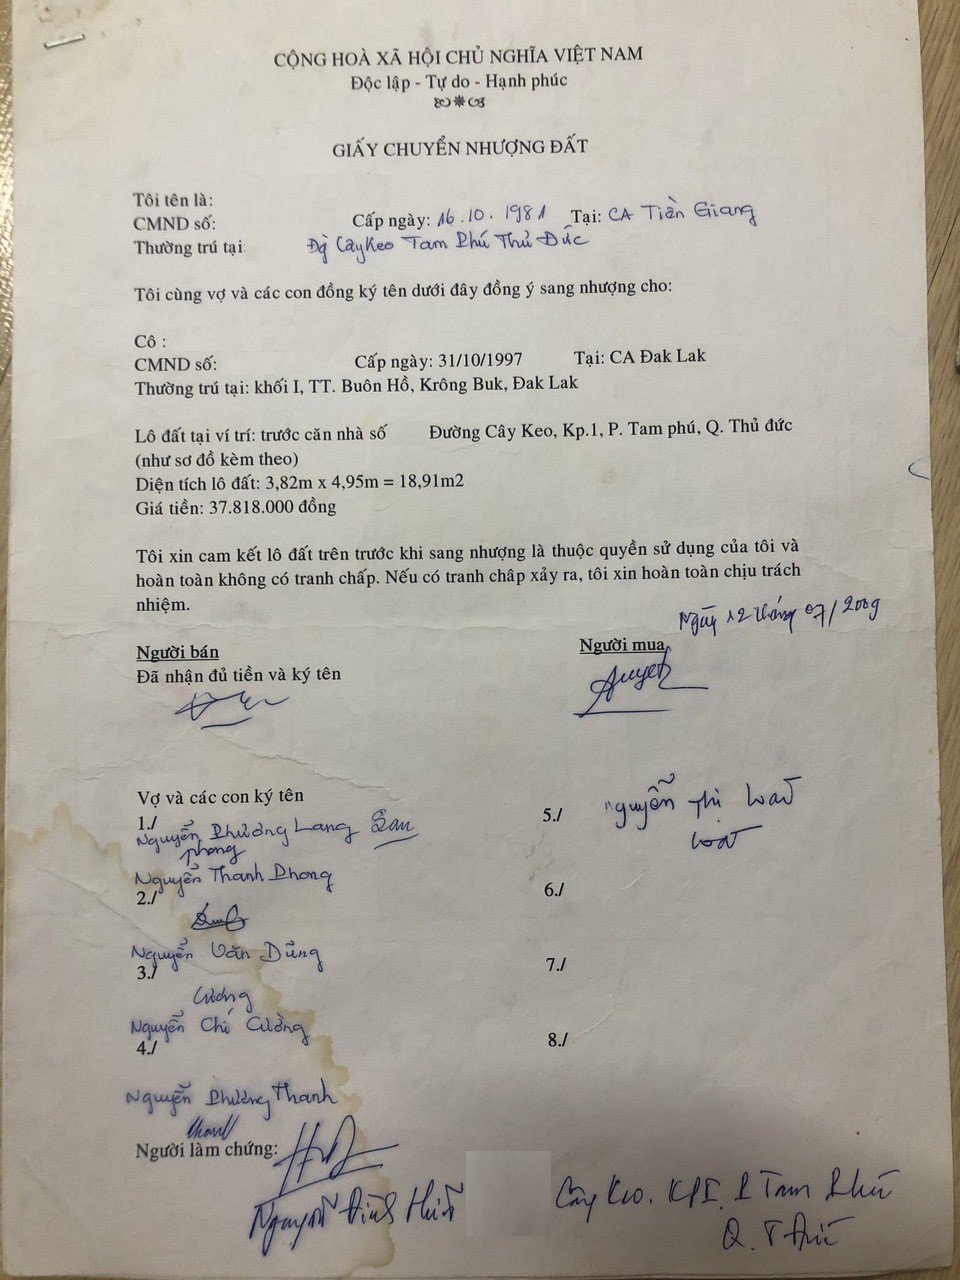 CỘNG HOÀ XÃ HỘI CHỦ NGHĨA VIỆT NAM
Độc lập - Tự do - Hạnh phúc
GIẤY CHUYỂN NHƯỢNG ĐẤT
Tôi tên là:
CMND số: Cấp ngày: 16.10.1981 Tại: CA Tiền Giang
Thường trú tại Đg Cây Keo Tam Phú Thủ Đức
Tôi cùng vợ và các con đồng ký tên dưới đây đồng ý sang nhượng cho:
Cô :
CMND số: Cấp ngày: 31/10/1997 Tại: CA Đak Lak
Thường trú tại: khối I, TT. Buôn Hồ, Krông Buk, Đak Lak
Lô đất tại ví trí: trước căn nhà số Đường Cây Keo, Kp.1, P. Tam phú, Q. Thủ đức
(như sơ đồ kèm theo)
Diện tích lô đất: 3,82m x 4,95m = 18,91m2
Giá tiền: 37.818.000 đồng
Tôi xin cam kết lô đất trên trước khi sang nhượng là thuộc quyền sử dụng của tôi và
hoàn toàn không có tranh chấp. Nếu có tranh châp xảy ra, tôi xin hoàn toàn chịu trách
nhiệm.
Ngày 12 tháng 07/2009
Người bán Người mua
Đã nhận đủ tiền và ký tên
Vợ và các con ký tên
1./ 5./ Nguyễn Thị Loan
Nguyễn Phương Lang
phong
Nguyễn Thanh Phong
2./ 6./
Nguyễn Văn Dũng
3./ 7./
Cường
Nguyễn Chí Cường
4./ 8./
Nguyễn Phương Thanh
Người làm chứng:
Nguyễn Đình Cây Keo. KPI. P Tam Phú
Q. T Đức